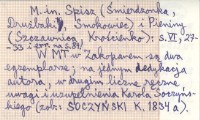 M.in. Spisz (Śmierdzonka,
Drużbaki, Smokowiec) i Pieniny
(Szczawnica, Krościenko): s. VI, 27-
-33 i
MT w Zakopanem są dwa
egzemplarze: na jednym dedykacja
autora, w drugim liczne
uwagi i uzupełnienia Karola Soczyń-
skiego (zob: SOCZYŃSKI K. 1834 a).